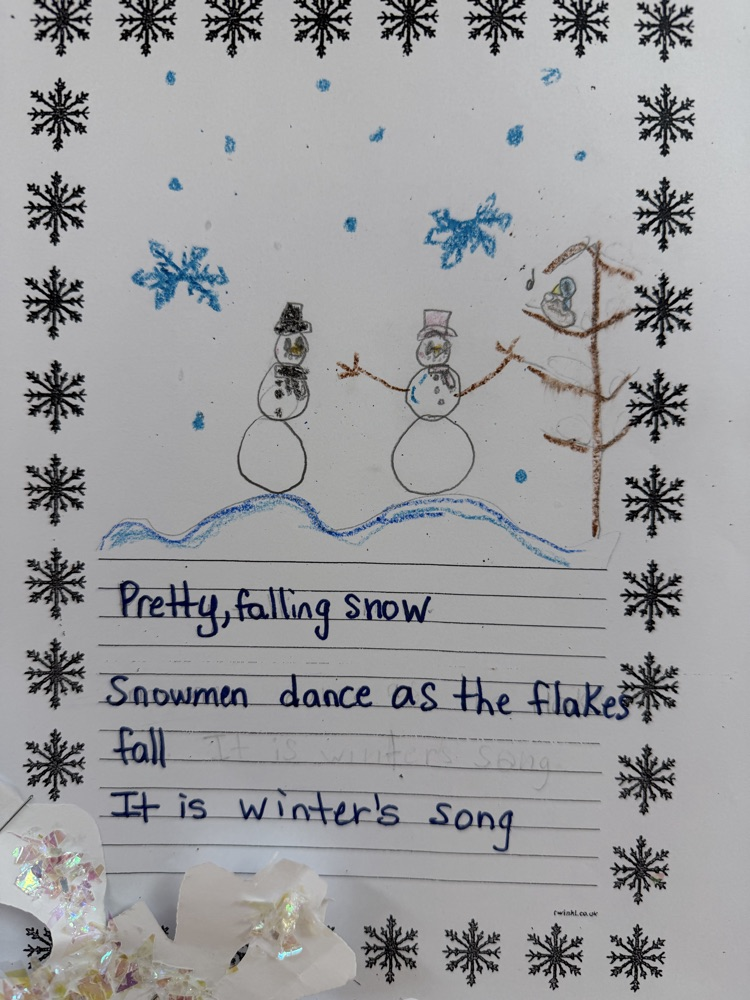 Pretty, falling snow
Snowmen dance as the flakes
fall It is winter's song
It is winter's song
twinkl.co.uk